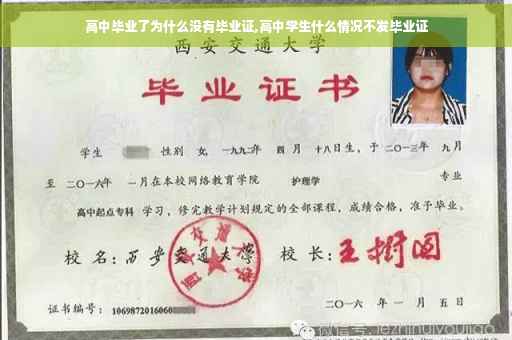 高中毕业了为什么没有毕业证,高中学生什么情况不发毕业证
西安交通大学
毕业证书
学生 性别 女, 一九九二年 四月 十八日生, 于二〇一三年 九月
至 二〇一六年 一月在本校网络教育学院 护理学 专业
高中起点专科 学习, 修完教学计划规定的全部课程, 成绩合格, 准予毕业。
校名: 西安交通大学 校长: 王树国
西安交通大学
证书编号: 1069872016060
二〇一六年 一月 五日
微信号: jezhihuiyoujiao